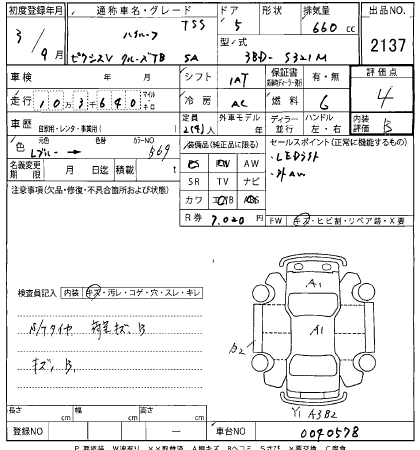 初度登録年月 通称車名・グレード TSS ドア 形状 排気量 出品NO.
3/9月 ハイルーフ 5 660 cc 2137
ピクシスV クルーズTB SA 型式 3BD- S321M
車検 年 月 シフト IAT 保証書 有・無 評価点
走行 10万3千640 マイル キロ 冷房 AC 燃料 G 4
車歴 自家用・レンタ・事業用( ) 定員 2(4)人 外車モデル 年 ディーラー・並行 ハンドル 左・右 内装評価 B
色 元色 Lブルー → 色替 カラーNO 569 装備品(純正品に限る) セールスポイント(正常に機能するもの)
名義変更期限 月 日迄 積載 t PS PW AW ・LEDライト
注意事項(欠品・修復・不具合箇所および状態) SR TV ナビ ・外AW
カワ エアB ABS
R券 7,020 円 FW キズ・ヒビ割・リペア跡・X要
検査員記入 内装 キズ・汚レ・コゲ・穴・スレ・キレ
N/Tタイヤ 荷室キズ B
キズ B
A1
A1
B2
Y1 A3B2
長さ cm 幅 cm 高さ cm
登録NO — 車台NO 0040578